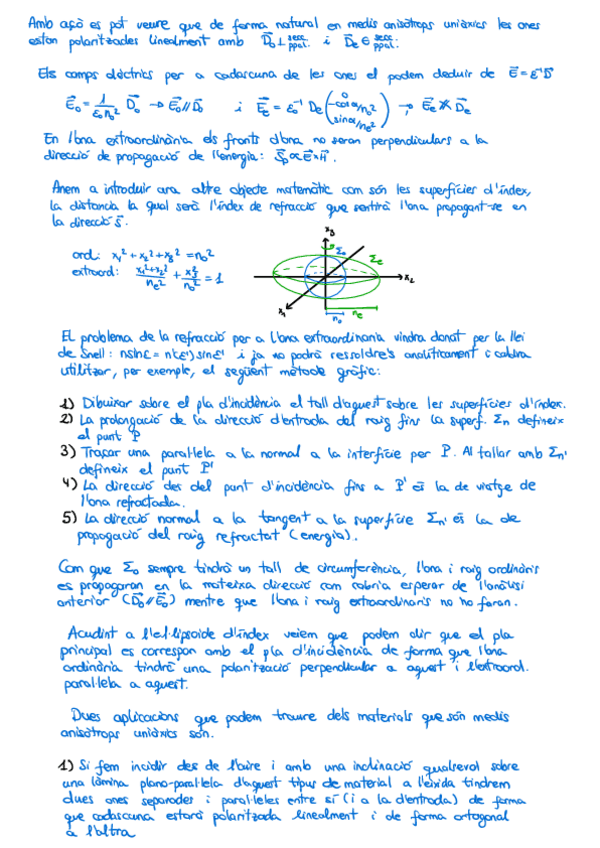 Amb açò es pot veure que de forma natural en medis anisòtrops uniàxics les ones
estan polaritzades linealment amb D⃗o ⊥ secc. ppal. i D⃗e ∈ secc. ppal.
Els camps elèctrics per a cadascuna de les ones el podem deduir de E⃗ = ε⁻¹D⃗
E⃗o = 1/(ε₀n₀²) D⃗o → E⃗o // D⃗o i E⃗e = ε₀⁻¹ De (0, -cosα/n₀², sinα/ne²) → E⃗e ∦ D⃗e
En l'ona extraordinària els fronts d'ona no seran perpendiculars a la
direcció de propagació de l'energia: S⃗p ∝ E⃗×H⃗.
Anem a introduir ara altre objecte matemàtic com són les superfícies d'índex,
la distància la qual serà l'índex de refracció que sentirà l'ona propagant-se en
la direcció s⃗.
ord: x₁² + x₂² + x₃² = n₀²
extraord: (x₁²+x₂²)/ne² + x₃²/n₀² = 1
x₃
Σo
Σe
x₂
x₁
n₀
ne
El problema de la refracció per a l'ona extraordinària vindrà donat per la llei
de Snell: nsinε = n'(ε')sinε' i ja no podrà ressoldre's analíticament i caldrà
utilitzar, per exemple, el següent mètode gràfic:
1) Dibuixar sobre el pla d'incidència el tall d'aquest sobre les superfícies d'índex.
2) La prolongació de la direcció d'entrada del raig fins la superf. Σn defineix
el punt P
3) Traçar una paral·lela a la normal a la interfície per P. Al tallar amb Σn'
defineix el punt P'
4) La direcció des del punt d'incidència fins a P' és la de viatge de
l'ona refractada.
5) La direcció normal a la tangent a la superfície Σn' és la de
propagació del raig refractat (energia).
Com que Σo sempre tindrà un tall de circumferència, l'ona i raig ordinàris
es propagaran en la mateixa direcció com cabria esperar de l'anàlisi
anterior (D⃗o // E⃗o) mentre que l'ona i raig extraordinaris no ho faran.
Acudint a l'el·lipsoide d'índex veiem que podem dir que el pla
principal es correspon amb el pla d'incidència de forma que l'ona
ordinària tindrà una polarització perpendicular a aquest i l'extraord.
paral·lela a aquest.
Dues aplicacions que podem traure dels materials que són medis
anisòtrops uniàxics són.
1) Si fem incidir des de l'aire i amb una inclinació qualsevol sobre
una làmina plano-paral·lela d'aquest tipus de material a l'eixida tindrem
dues ones separades i paral·leles entre sí (i a la d'entrada) de forma
que cadascuna estarà polaritzada linealment i de forma ortogonal
a l'altra